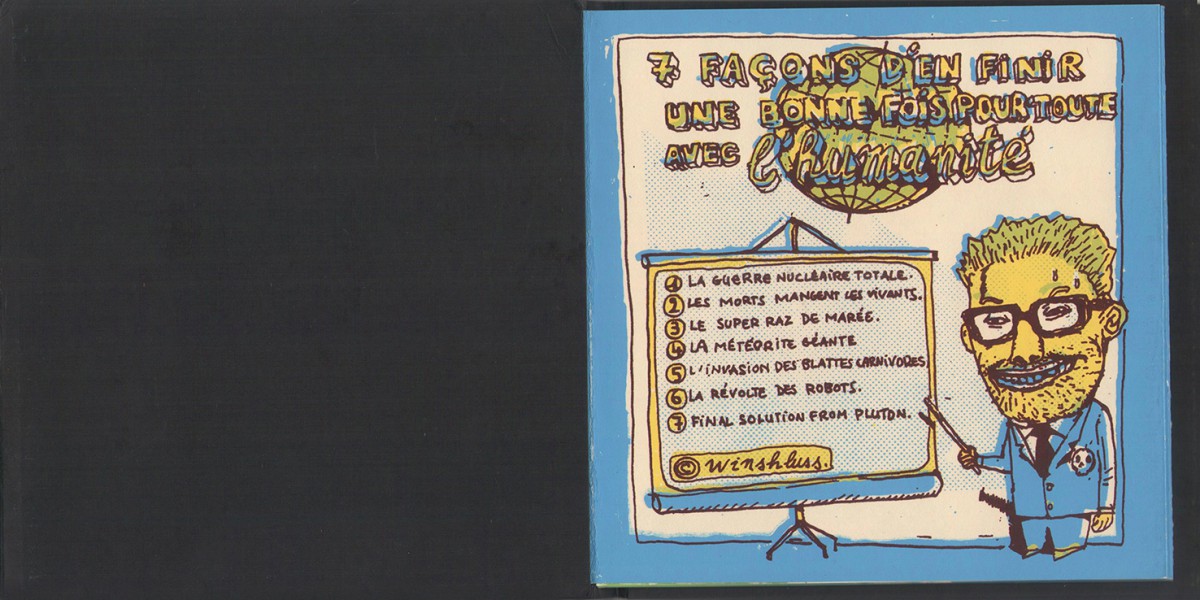 7 FAÇONS D'EN FINIR
UNE BONNE FOIS POUR TOUTE
AVEC l'humanité
1 LA GUERRE NUCLÉAIRE TOTALE.
2 LES MORTS MANGENT LES VIVANTS.
3 LE SUPER RAZ DE MARÉE.
4 LA MÉTÉORITE GÉANTE
5 L'INVASION DES BLATTES CARNIVORES
6 LA RÉVOLTE DES ROBOTS.
7 FINAL SOLUTION FROM PLUTON.
© winshluss.